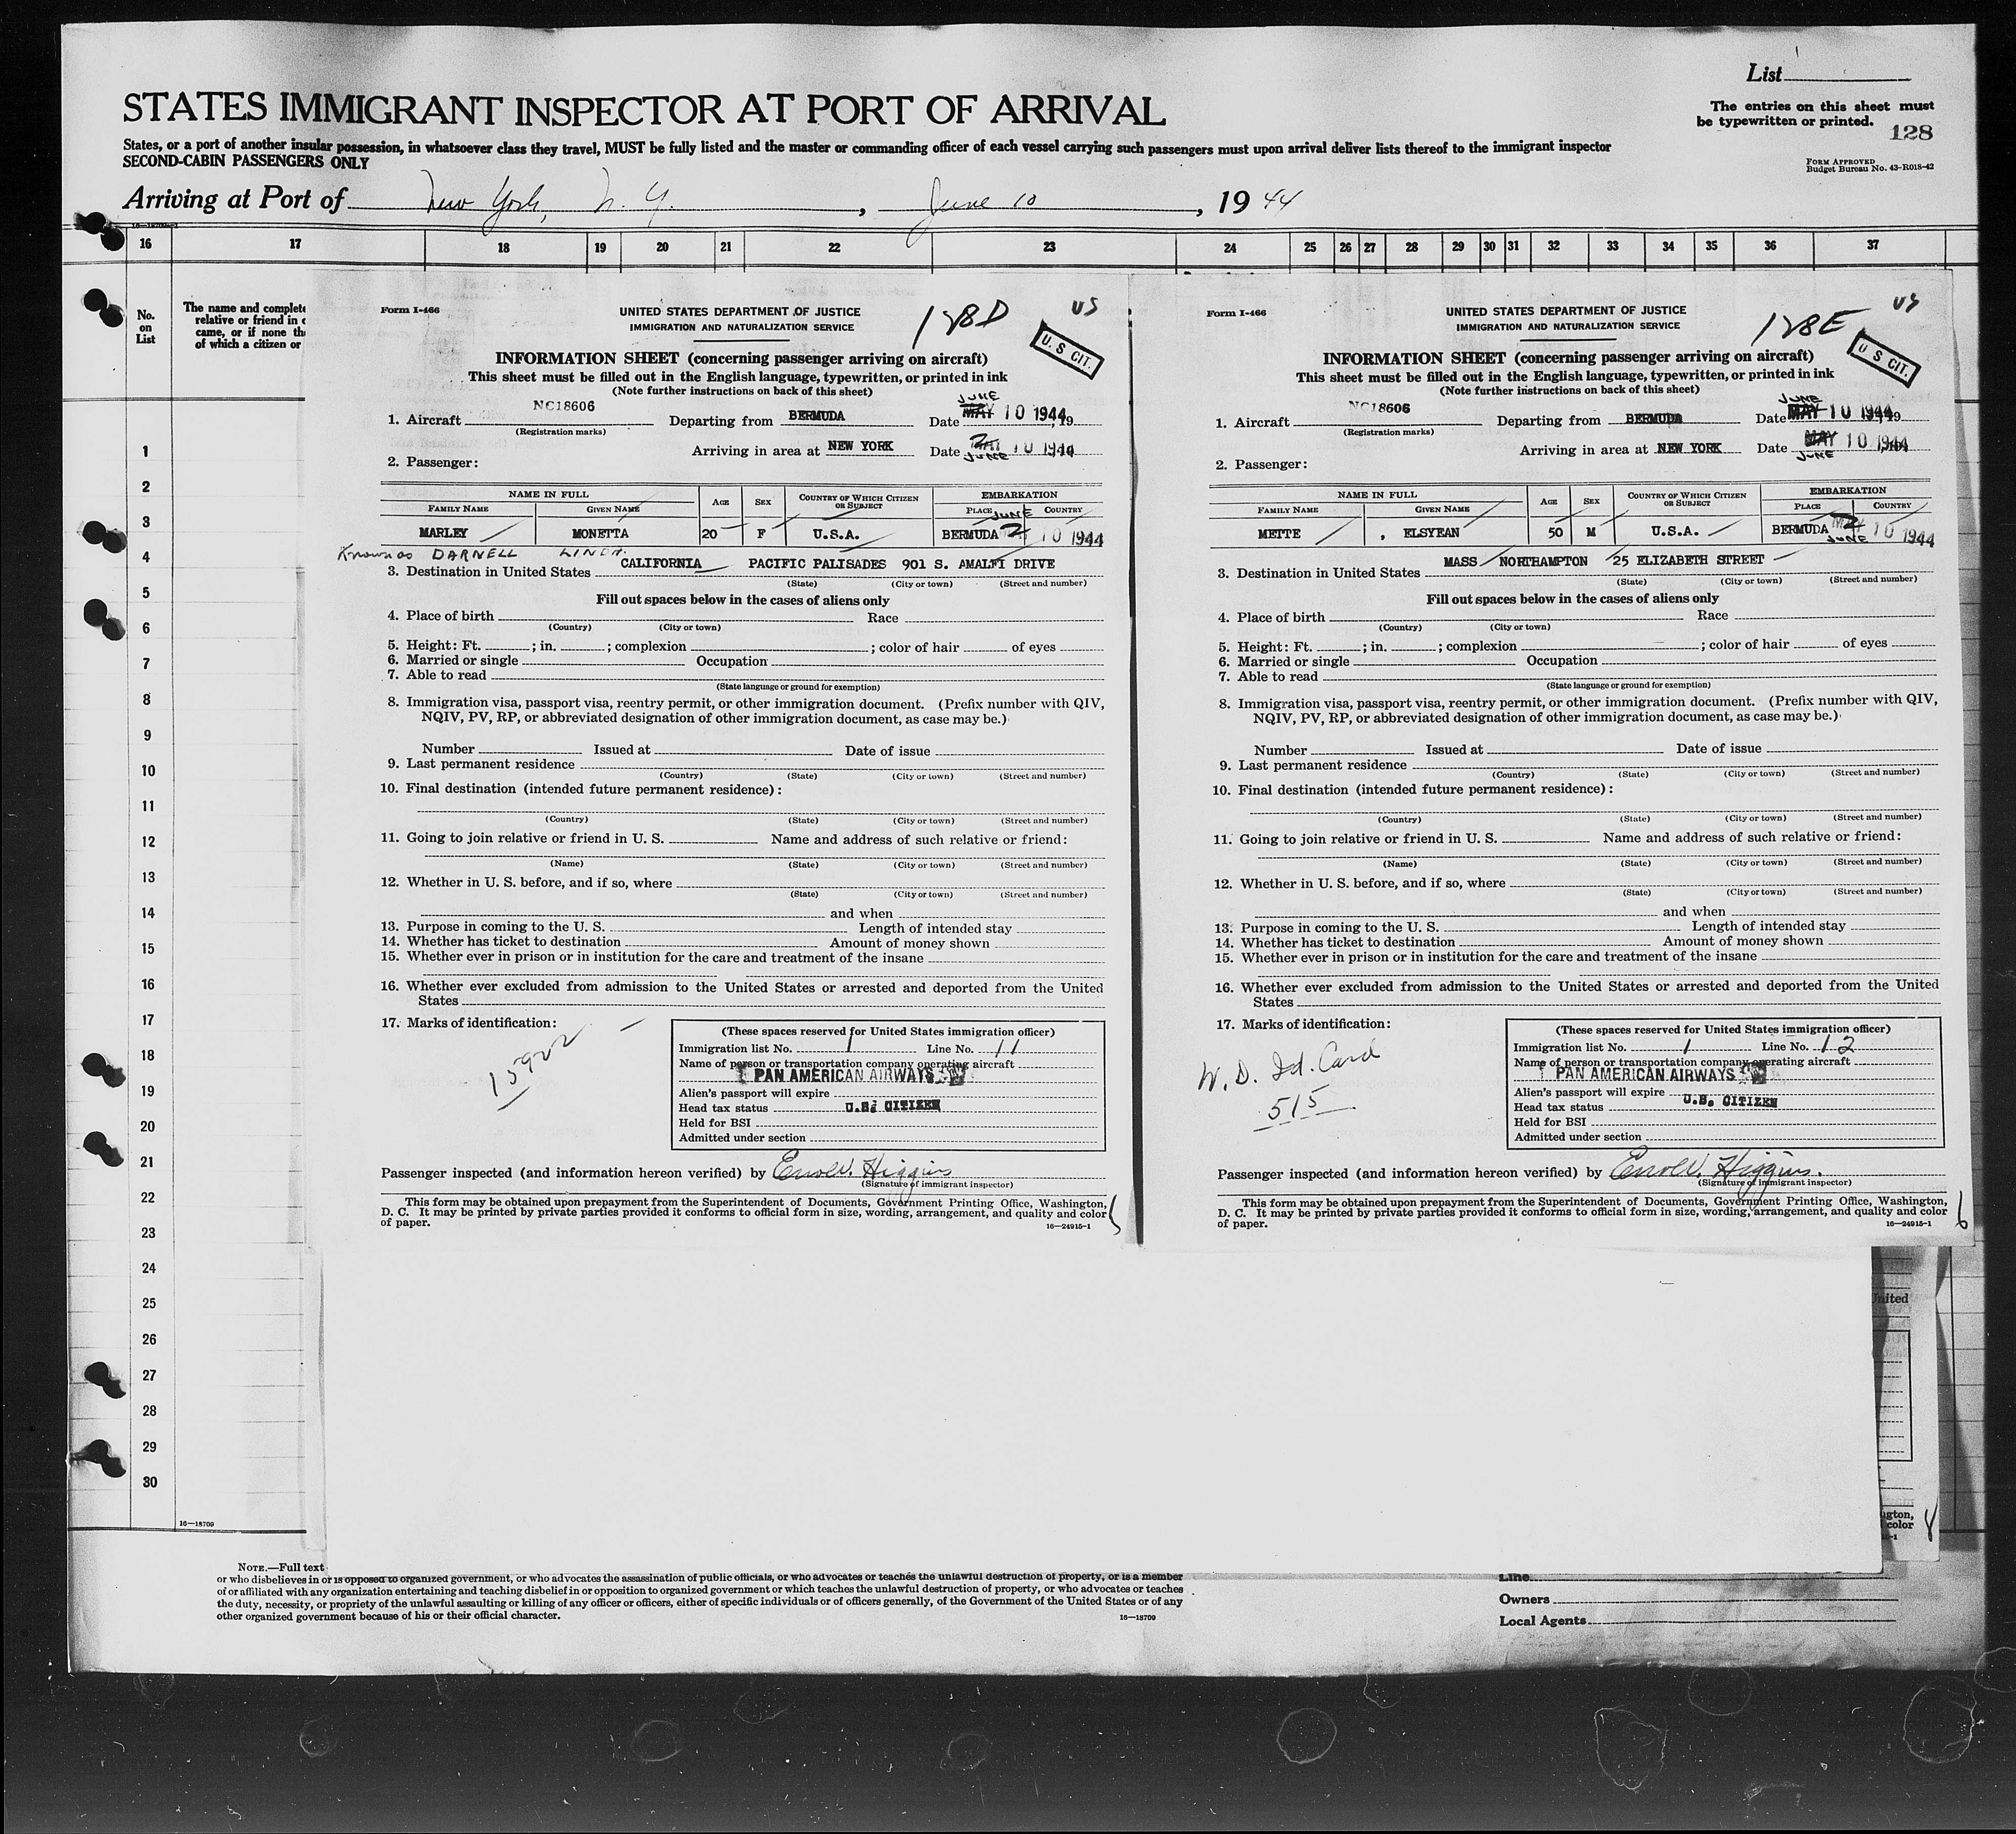 List
STATES IMMIGRANT INSPECTOR AT PORT OF ARRIVAL
The entries on this sheet must
be typewritten or printed.
128
States, or a port of another insular possession, in whatsoever class they travel, MUST be fully listed and the master or commanding officer of each vessel carrying such passengers must upon arrival deliver lists thereof to the immigrant inspector
SECOND-CABIN PASSENGERS ONLY
FORM APPROVED
Budget Bureau No. 43-R018-42
Arriving at Port of New York, N. Y., June 10, 1944
16 17 18 19 20 21 22 23 24 25 26 27 28 29 30 31 32 33 34 35 36 37
No.
on
List
The name and complete
relative or friend in c
came, or if none th
of which a citizen or
1
2
3
4
5
6
7
8
9
10
11
12
13
14
15
16
17
18
19
20
21
22
23
24
25
26
27
28
29
30
16—18709
Form I-466
UNITED STATES DEPARTMENT OF JUSTICE
IMMIGRATION AND NATURALIZATION SERVICE
128D
US
U. S CIT.
INFORMATION SHEET (concerning passenger arriving on aircraft)
This sheet must be filled out in the English language, typewritten, or printed in ink
(Note further instructions on back of this sheet)
1. Aircraft NC18606 Departing from BERMUDA Date JUNE MAY 10 1944, 19
(Registration marks)
Arriving in area at NEW YORK Date JUNE 10 1944
2. Passenger:
NAME IN FULL AGE SEX COUNTRY OF WHICH CITIZEN OR SUBJECT EMBARKATION
FAMILY NAME GIVEN NAME PLACE COUNTRY
MARLEY MONETTA 20 F U.S.A. BERMUDA JUNE 10 1944
Known as DARNELL LINDA
3. Destination in United States CALIFORNIA PACIFIC PALISADES 901 S. AMALFI DRIVE
(State) (City or town) (Street and number)
Fill out spaces below in the cases of aliens only
4. Place of birth Race
(Country) (City or town)
5. Height: Ft. ; in. ; complexion ; color of hair of eyes
6. Married or single Occupation
7. Able to read
(State language or ground for exemption)
8. Immigration visa, passport visa, reentry permit, or other immigration document. (Prefix number with QIV,
NQIV, PV, RP, or abbreviated designation of other immigration document, as case may be.)
Number Issued at Date of issue
9. Last permanent residence
(Country) (State) (City or town) (Street and number)
10. Final destination (intended future permanent residence):
(Country) (State) (City or town) (Street and number)
11. Going to join relative or friend in U. S. Name and address of such relative or friend:
(Name) (State) (City or town) (Street and number)
12. Whether in U. S. before, and if so, where
(State) (City or town) (Street and number)
and when
13. Purpose in coming to the U. S. Length of intended stay
14. Whether has ticket to destination Amount of money shown
15. Whether ever in prison or in institution for the care and treatment of the insane
16. Whether ever excluded from admission to the United States or arrested and deported from the United
States
17. Marks of identification:
15922
(These spaces reserved for United States immigration officer)
Immigration list No. 1 Line No. 11
Name of person or transportation company operating aircraft
PAN AMERICAN AIRWAYS
Alien's passport will expire
Head tax status U.S. CITIZEN
Held for BSI
Admitted under section
Passenger inspected (and information hereon verified) by Errol V. Higgins
(Signature of immigrant inspector)
This form may be obtained upon prepayment from the Superintendent of Documents, Government Printing Office, Washington,
D. C. It may be printed by private parties provided it conforms to official form in size, wording, arrangement, and quality and color
of paper.
16—24915-1
Form I-466
UNITED STATES DEPARTMENT OF JUSTICE
IMMIGRATION AND NATURALIZATION SERVICE
128E
US
U S CIT.
INFORMATION SHEET (concerning passenger arriving on aircraft)
This sheet must be filled out in the English language, typewritten, or printed in ink
(Note further instructions on back of this sheet)
1. Aircraft NC18606 Departing from BERMUDA Date JUNE MAY 10 1944, 19
(Registration marks)
Arriving in area at NEW YORK Date MAY JUNE 10 1944
2. Passenger:
NAME IN FULL AGE SEX COUNTRY OF WHICH CITIZEN OR SUBJECT EMBARKATION
FAMILY NAME GIVEN NAME PLACE COUNTRY
METTE , ELSYEAN 50 M U.S.A. BERMUDA JUNE 10 1944
3. Destination in United States MASS NORTHAMPTON 25 ELIZABETH STREET
(State) (City or town) (Street and number)
Fill out spaces below in the cases of aliens only
4. Place of birth Race
(Country) (City or town)
5. Height: Ft. ; in. ; complexion ; color of hair of eyes
6. Married or single Occupation
7. Able to read
(State language or ground for exemption)
8. Immigration visa, passport visa, reentry permit, or other immigration document. (Prefix number with QIV,
NQIV, PV, RP, or abbreviated designation of other immigration document, as case may be.)
Number Issued at Date of issue
9. Last permanent residence
(Country) (State) (City or town) (Street and number)
10. Final destination (intended future permanent residence):
(Country) (State) (City or town) (Street and number)
11. Going to join relative or friend in U. S. Name and address of such relative or friend:
(Name) (State) (City or town) (Street and number)
12. Whether in U. S. before, and if so, where
(State) (City or town) (Street and number)
and when
13. Purpose in coming to the U. S. Length of intended stay
14. Whether has ticket to destination Amount of money shown
15. Whether ever in prison or in institution for the care and treatment of the insane
16. Whether ever excluded from admission to the United States or arrested and deported from the United
States
17. Marks of identification:
W. D. Id. Card
515
(These spaces reserved for United States immigration officer)
Immigration list No. 1 Line No. 12
Name of person or transportation company operating aircraft
PAN AMERICAN AIRWAYS
Alien's passport will expire
Head tax status U.S. CITIZEN
Held for BSI
Admitted under section
Passenger inspected (and information hereon verified) by Errol V. Higgins.
(Signature of immigrant inspector)
This form may be obtained upon prepayment from the Superintendent of Documents, Government Printing Office, Washington,
D. C. It may be printed by private parties provided it conforms to official form in size, wording, arrangement, and quality and color
of paper.
16—24915-1
6
nited
gton,
color
NOTE.—Full text
or who disbelieves in or is opposed to organized government, or who advocates the assassination of public officials, or who advocates or teaches the unlawful destruction of property, or is a member
of or affiliated with any organization entertaining and teaching disbelief in or opposition to organized government or which teaches the unlawful destruction of property, or who advocates or teaches
the duty, necessity, or propriety of the unlawful assaulting or killing of any officer or officers, either of specific individuals or of officers generally, of the Government of the United States or of any
other organized government because of his or their official character.
16—18709
Line
Owners
Local Agents